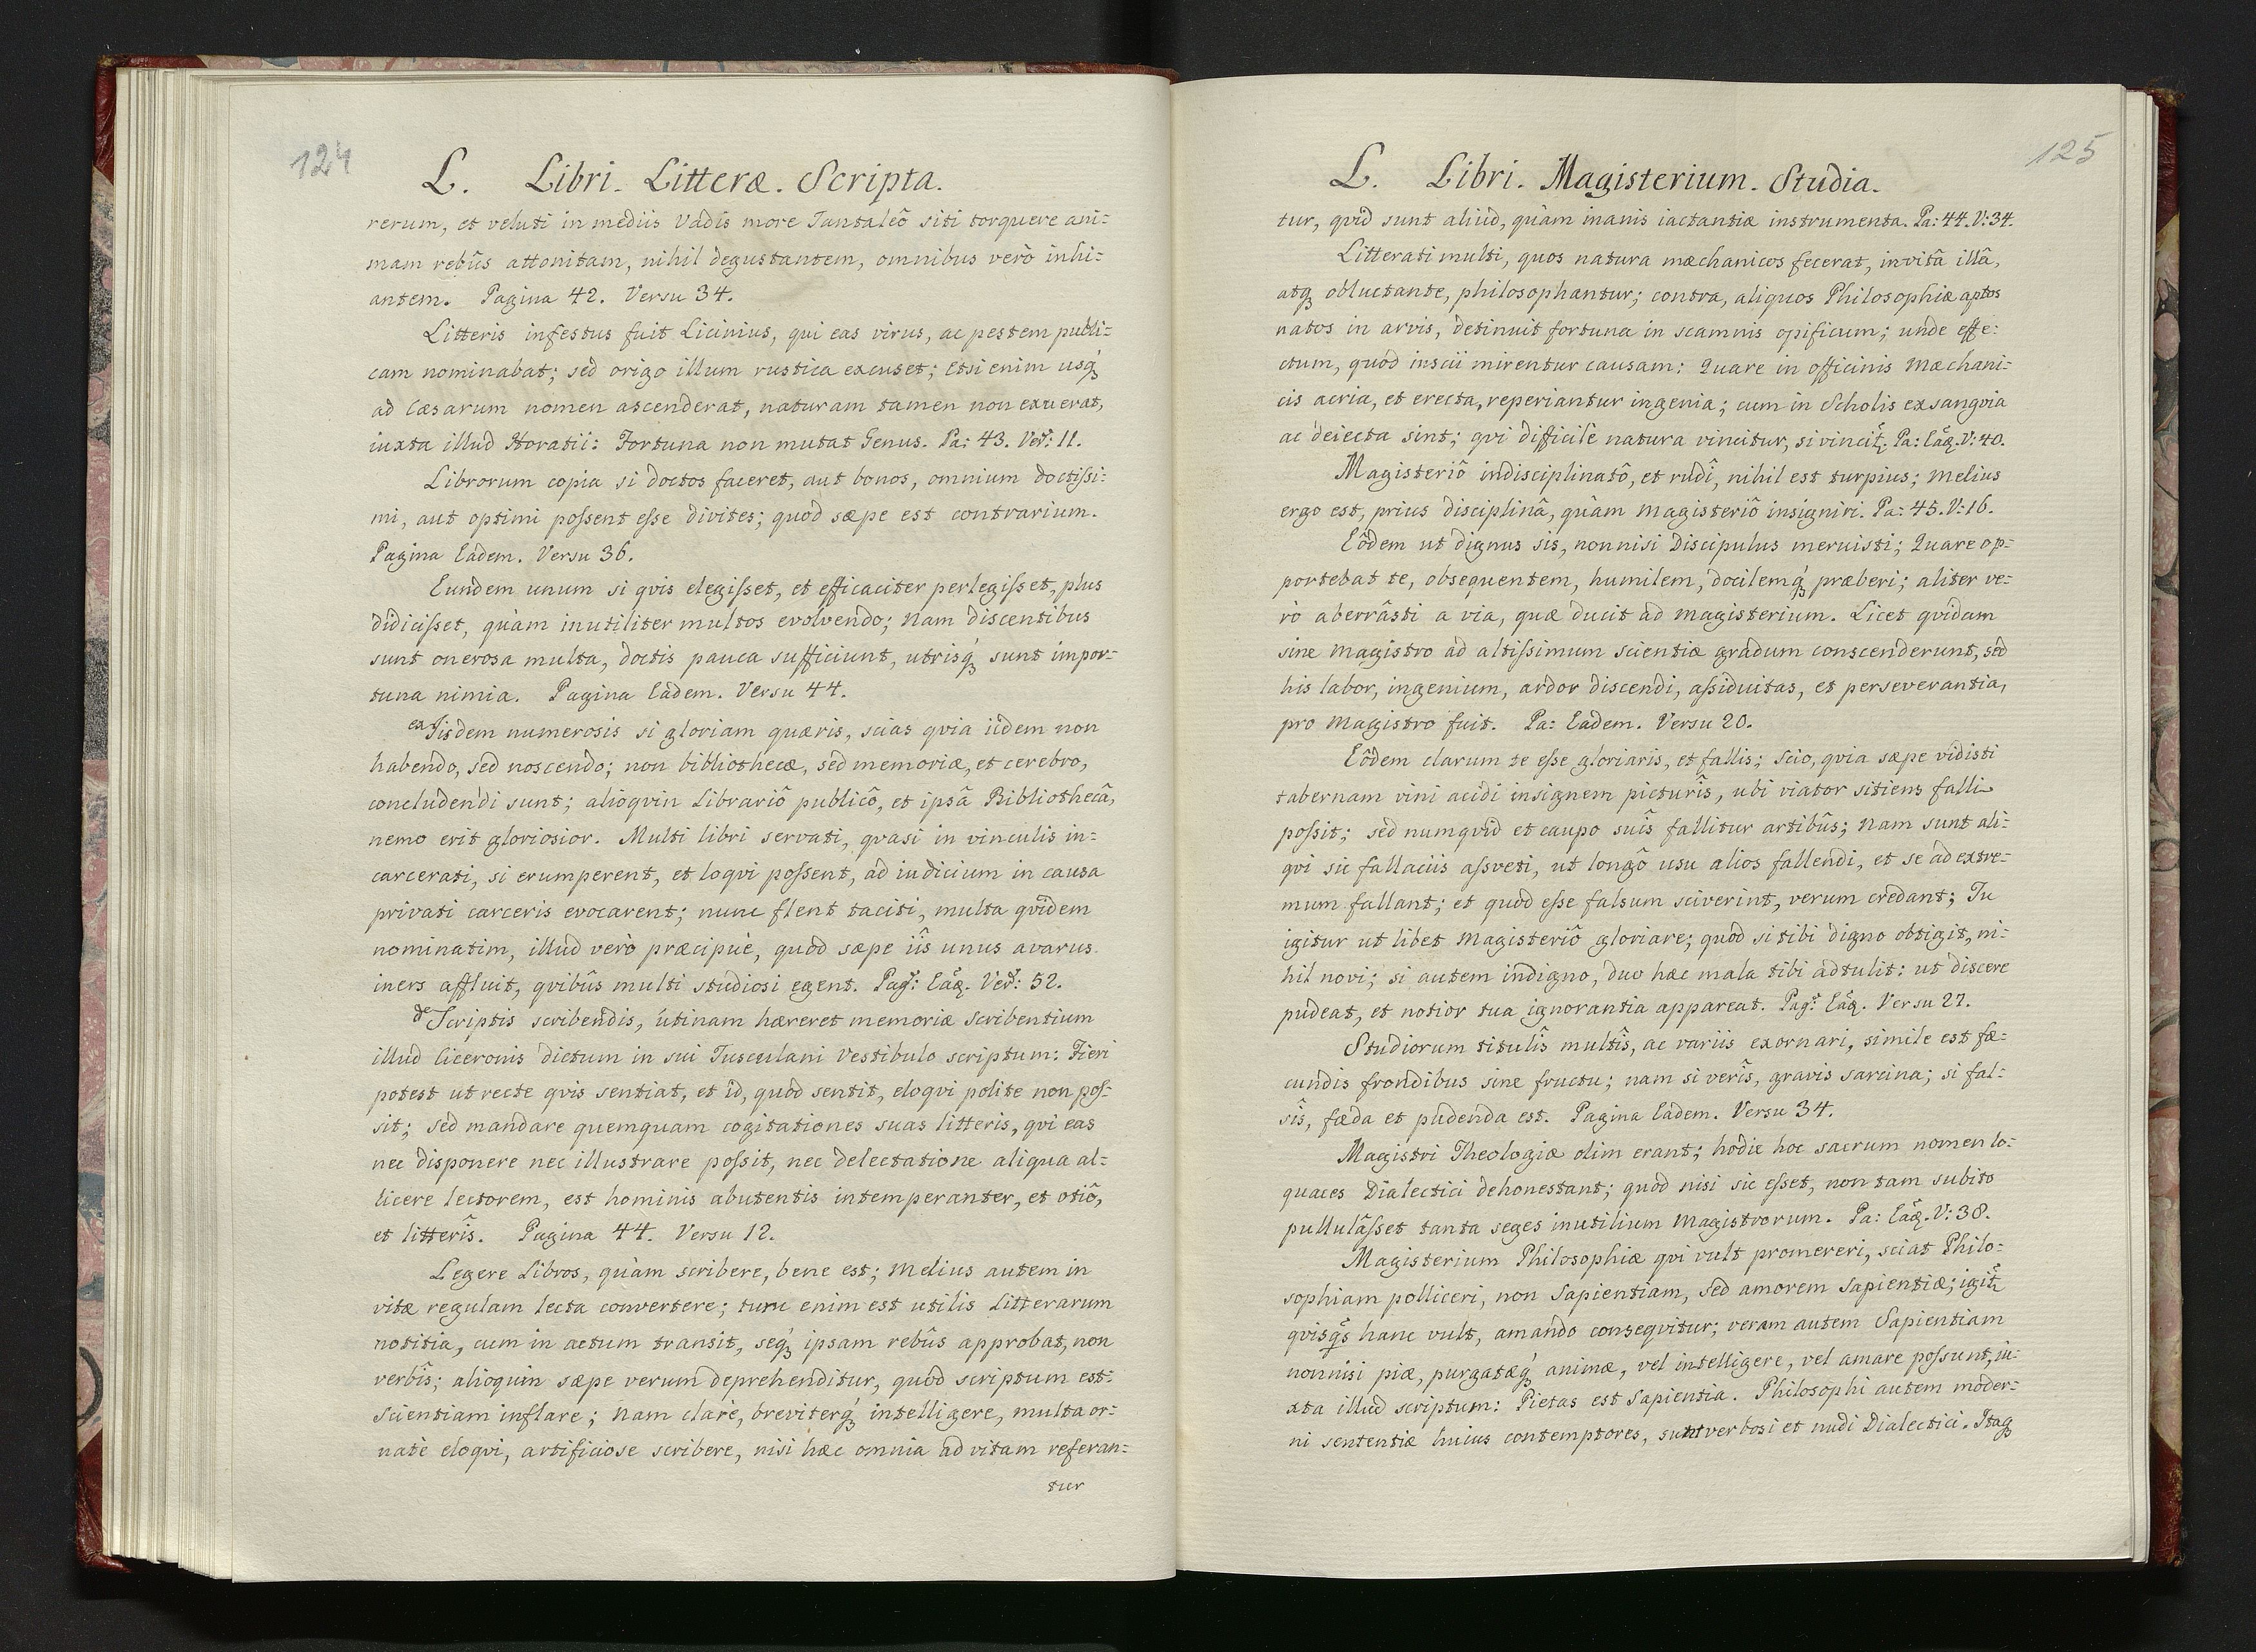 124
L. Libri. Litteræ. Scripta.
rerum, et veluti in mediis vadis more Tantaleô siti torquere ani:
mam rebûs attonitam, nihil degustantem, omnibus verò inhi:
antem. Pagina 42. Versu 34.
Litteris infestus fuit Licinius, qui eas virus, ac pestem publi:
cam nominabat; sed origo illum rustica excuset; etsi enim usq́ꝫ
ad Cæsarum nomen ascenderat, naturam tamen non exuerat,
iuxta illud Horatii: Fortuna non mutat Genus. Pa: 43. Ver̃: 11.
Librorum copia si doctos faceret, aut bonos, omnium doctiſsi:
mi, aut optimi poſsent eſse divites; quod sæpe est contrarium.
Pagina Eâdem. Versu 36.
Eundem unum si qvis elegiſset, et efficaciter perlegiſset, plus
didiciſset, quàm inutiliter multos evolvendo; Nam discentibus
sunt onerosa multa, doctis pauca sufficiunt, utrisq́ꝫ sunt impor:
tuna nimia. Pagina Eâdem. Versu 44.
ex Iisdem numerosis si gloriam quæris, scias qvia iidem non
habendo, sed noscendo; non bibliothecæ, sed memoriæ, et cerebro,
concludendi sunt; alioqvin Librariô publicô, et ipsâ Bibliothecâ,
nemo erit gloriosior. Multi libri servati, qvasi in vinculis in:
carcerati, si erumperent, et loqvi poſsent, ad iudicium in causa
privati carceris evocarent; nunc flent taciti, multa qvidem
nominatim, illud verò præcipuè, quod sæpe iîs unus avarus
iners affluit, qvibûs multi studiosi egent. Pag̃: Eâq̃. Ver̃: 52.
de Scriptis scribendis, utinam hæreret memoriæ scribentium
illud Ciceronis dictum in sui Tusculani vestibulo scriptum: Fieri
potest ut recte qvis sentiat, et id, quod sentit, eloqvi polite non poſ:
sit; sed mandare quemquam cogitationes suas litteris, qvi eas
nec disponere nec illustrare poſsit, nec delectatione aliqua al:
licere lectorem, est hominis abutentis intemperanter, et otiô,
et litterîs. Pagina 44. Versu 12.
Legere Libros, quàm scribere, bene est; Melius autem in
vitæ regulam lecta convertere; tunc enim est utilis Litterarum
notitia, cum in actum transit, seq́ꝫ ipsam rebûs approbat, non
verbîs; alioquin sæpe verum deprehenditur, quod scriptum est:
Scientiam inflare; Nam clarè, breviterq́ꝫ intelligere, multa or:
natè eloqvi, artificiose scribere, nisi hæc omnia ad vitam referan:
tur
125
L. Libri. Magisterium. Studia.
tur, qvid sunt aliud, quàm inanis iactantiæ instrumenta. Pa: 44. V: 34.
Litterati multi, quos natura mæchanicos fecerat, invitâ illâ,
atqꝫ obluctante, philosophantur; contra, aliquos Philosophiæ aptos
natos in arvis, detinuit fortuna in scamnis opificum; unde effe:
ctum, quod inscii mirentur causam: Quare in officinis Mæchani:
cis acria, et erecta, reperiantur ingenia; cum in Scholis exsangvia
ac deiecta sint; qvi difficilè natura vincitur, si vincit̃. Pa: Eâq̃. V: 40.
Magisteriô indisciplinatô, et rudî, nihil est turpius; Melius
ergo est, prius disciplinâ, quàm Magisteriô insigniri. Pa: 45. V: 16.
Eôdem ut dignus sis, nonnisi Discipulus meruisti; Quare op:
portebat te, obsequentem, humilem, docilemq́ꝫ præberi; aliter ve:
rò aberrâsti a via, quæ ducit ad Magisterium. Licet qvidam
sine Magistro ad altiſsimum scientiæ gradum conscenderunt, sed
his labor, ingenium, ardor discendi, aſsiduitas, et perseverantia,
pro Magistro fuit. Pa: Eadem. Versu 20.
Eôdem clarum te eſse gloriaris, et fallis; Scio, qvia sæpe vidisti
tabernam vini acidi insignem picturîs, ubi viator sitiens falli
poſsit; sed numqvid et caupo suîs fallitur artibûs; Nam sunt ali:
qvi sic fallaciis aſsveti, ut longô usu alios fallendi, et se ad extre:
mum fallant; et quod eſse falsum sciverint, verum credant; Tu
igitur ut libet Magisteriô gloriare; quod si tibi digno obtigit, ni:
hil novi; si autem indigno, duo hæc mala tibi adtulit: ut discere
pudeat, et notior tua ignorantia appareat. Pag̃: Eâq̃. Versu 27.
Studiorum titulîs multîs, ac variis exornari, simile est fæ:
cundis frondibus sine fructu; nam si verîs, gravis sarcina; si fal:
sîs, fæda et pudenda est. Pagina Eâdem. Versu 34.
Magistri Theologiæ olim erant; hodie hoc sacrum nomen lo:
quaces Dialectici dehonestant; quod nisi sic eſset, non tam subito
pullulâſset tanta seges inutilium Magistrorum. Pa: Eâq̃. V: 38.
Magisterium Philosophiæ qvi vult promereri, sciat Philo:
sophiam polliceri, non Sapientiam, sed amorem Sapientiæ; igit̃
qvisq̃s hanc vult, amando conseqvitur; veram autem Sapientiam
nonnisi piæ, purgatæq́ꝫ animæ, vel intelligere, vel amare poſsunt, iu:
xta illud scriptum: Pietas est Sapientia. Philosophi autem moder:
ni sententiæ huius contemptores, sunt verbosi et nudi Dialectici. Itaqꝫ